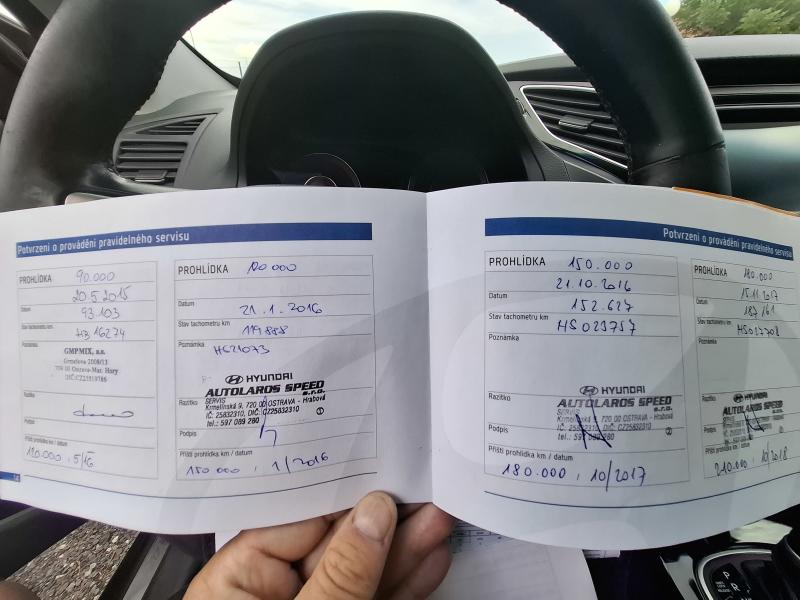 Potvrzení o provádění pravidelného servisu
PROHLÍDKA 90.000
20.5.2015
Datum
93.103
Stav tachometru km
HB 16274
Poznámka
GMPMIX, a.s.
Grmelova 2008/13
709 00 Ostrava-Mar. Hory
DIČ:CZ25819786
Razítko
Podpis
Příští prohlídka km / datum
120.000 5/16
PROHLÍDKA 120 000
Datum 21.1.2016
Stav tachometru km 119888
Poznámka HS21073
HYUNDAI
AUTOLAROS SPEED
s.r.o.
SERVIS
Krmelínská 9, 720 00 OSTRAVA - Hrabová
IČ: 25832310, DIČ: CZ25832310
tel.: 597 089 280
Razítko
Podpis
Příští prohlídka km / datum
150 000, 1/2016
Potvrzení o provádění pravidelného servisu
PROHLÍDKA 150.000
21.10.2016
Datum
152.627
Stav tachometru km
HS023757
Poznámka
HYUNDAI
AUTOLAROS SPEED
s.r.o.
SERVIS
Krmelínská 9, 720 00 OSTRAVA - Hrabová
IČ: 25832310, DIČ: CZ25832310
tel.: 597 089 280
Razítko
Podpis
Příští prohlídka km / datum
180.000, 10/2017
PROHLÍDKA 180.000
15.11.2017
Datum
187161
Stav tachometru km
Poznámka
HYUNDAI
AUTOLAROS SPEED
Razítko
Podpis
Příští prohlídka km / datum
210.000, 10/2018
P
R
N